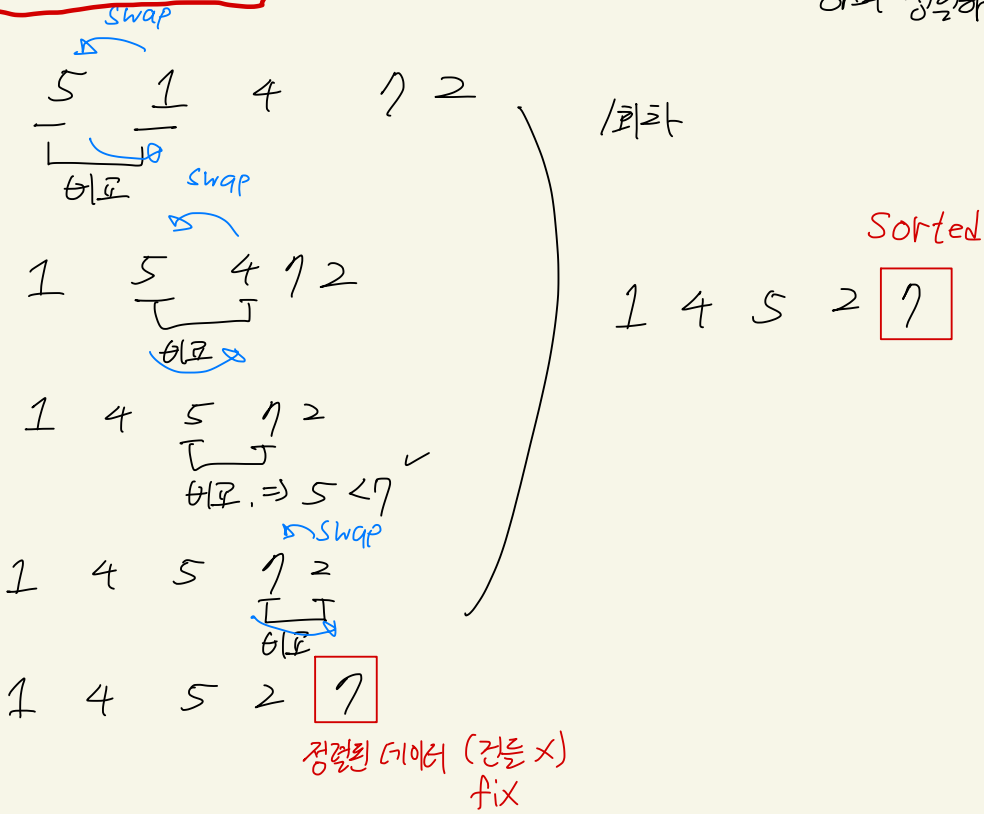 swap
5 1 4 7 2
비교
swap
1 5 4 7 2
비교
1 4 5 7 2
비교. => 5 < 7 ✓
swap
1 4 5 7 2
비교
1 4 5 2 7
정렬된 데이터 (건들 X)
fix
1회차
Sorted
1 4 5 2 7